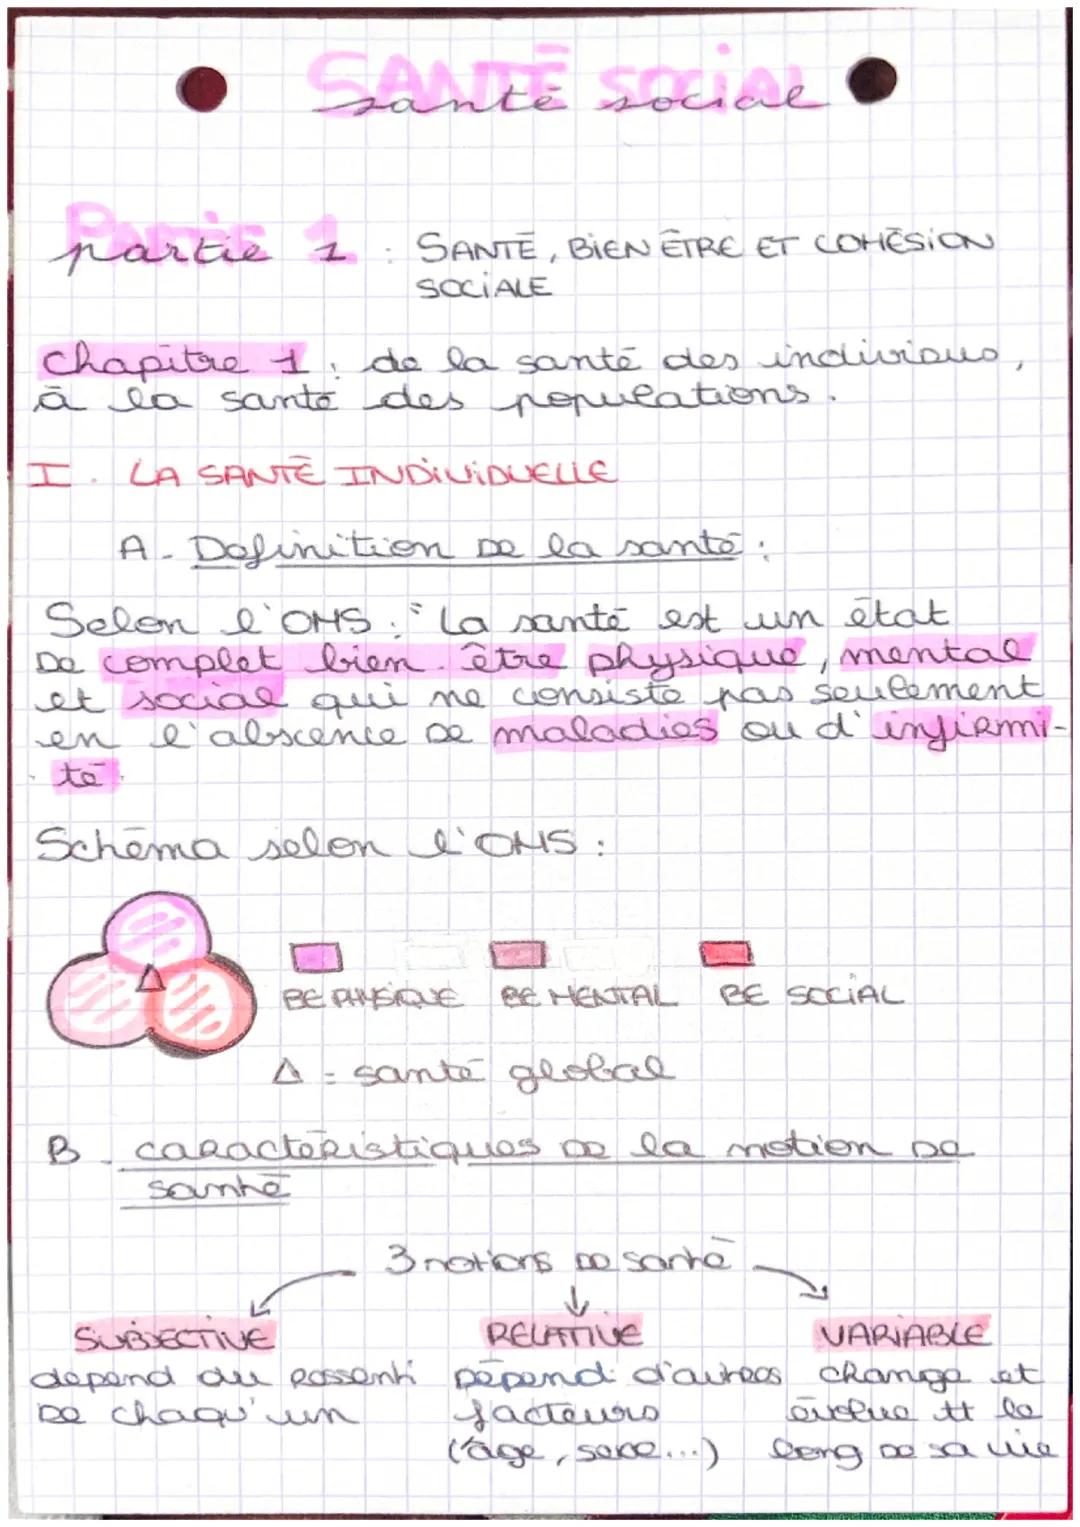 SANTÉ SOCIAL
santé social
PARTIE 1
partie 1 : SANTÉ, BIEN ÊTRE ET COHÉSION
SOCIALE
Chapitre 1 : de la santé des individus,
à la santé des populations.
I. LA SANTÉ INDIVIDUELLE
A - Definition de la santé :
Selon l'OMS : "La santé est un état
de complet bien-être physique, mental
et social qui ne consiste pas seulement
en l'abscence de maladies ou d'infirmi-
té.
Schéma selon l'OMS :
Δ
BE PHYSIQUE BE MENTAL BE SOCIAL
Δ = santé global
B. caractéristiques de la notion de
santé
3 notions de santé
SUBJECTIVE RELATIVE VARIABLE
dépend du ressenti dépend d'autres change et
de chaqu'un facteurs évolue tt le
(âge, sexe...) long de sa vie